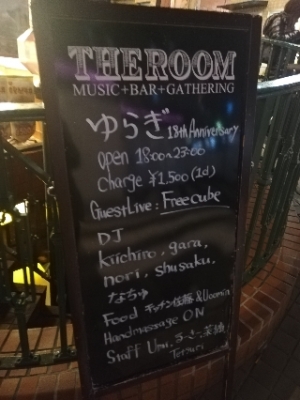 THE ROOM
MUSIC+BAR+GATHERING
ゆらぎ 18th Anniversary
open 18:00~23:00
Charge ¥1,500 (1d)
Guest Live : Free cube
DJ
Kiichiro, garu,
nori, shusaku,
なおちゅ
Food キッチン佐藤 & Uoomin
Handmassage ON
Staff Umi,
Tetsuri